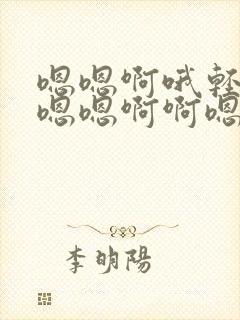 嗯嗯啊哦轻
嗯嗯啊啊嗯
李明陽